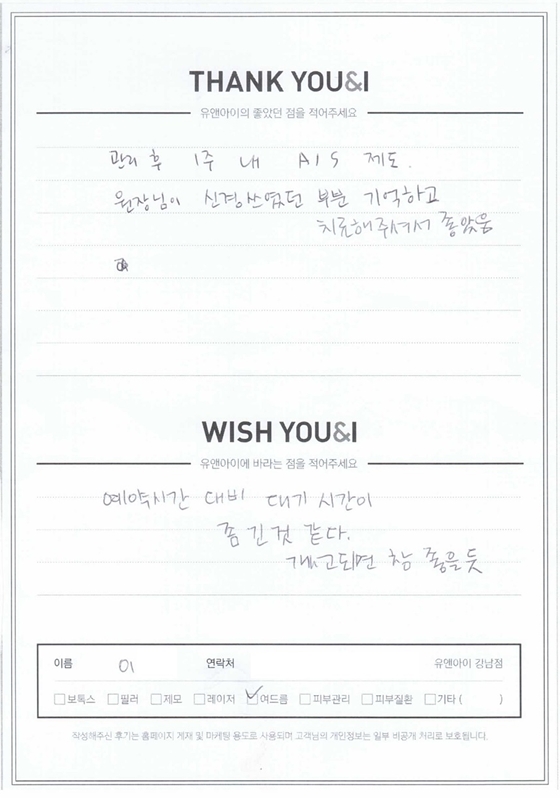 THANK YOU&I
유앤아이의 좋았던 점을 적어주세요
관리 후 1주 내 A/S 제도.
원장님이 신경쓰였던 부분 기억하고
치료해주셔서 좋았음
WISH YOU&I
유앤아이에 바라는 점을 적어주세요
예약시간 대비 대기 시간이
좀 긴것 같다.
개선되면 참 좋을듯
이름 이 연락처 유앤아이 강남점
보톡스 필러 제모 레이저 여드름 피부관리 피부질환 기타 ( )
작성해주신 후기는 홈페이지 게재 및 마케팅 용도로 사용되며 고객님의 개인정보는 일부 비공개 처리로 보호됩니다.